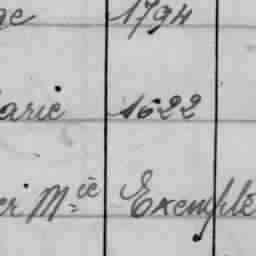 ge 1794
arie 1622
er Mie Exemple